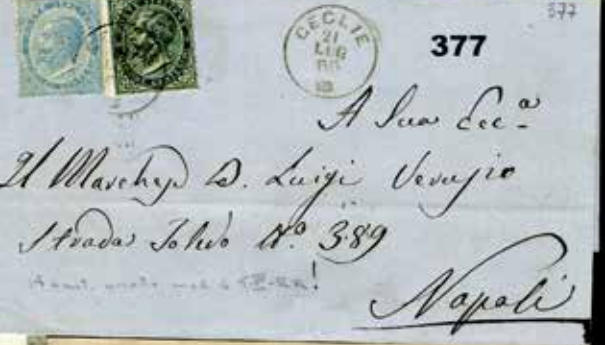 377
377
CEGLIE
21
LUG
A Sua Ecc.a
Il Marchese D. Luigi Verusio
Strada Toledo N.o 389
Napoli